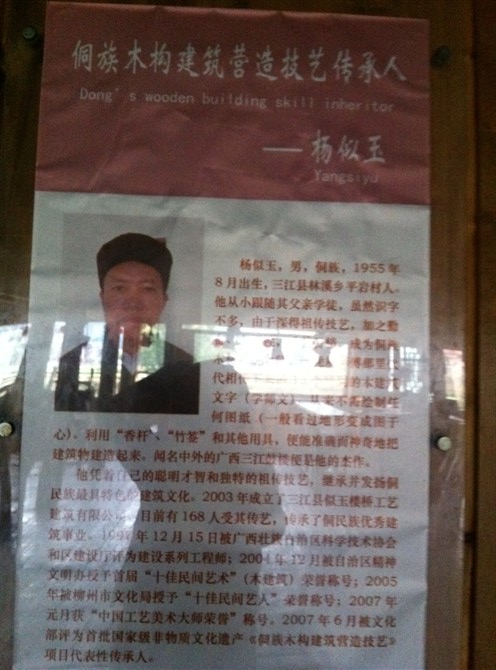 侗族木构建筑营造技艺传承人
Dong's wooden building skill inheritor
——杨似玉
Yangsiyu
杨似玉，男，侗族，1955年
8月出生，三江县林溪乡平岩村人。
他从小跟随其父亲学徒，虽然识字
不多，由于深得祖传技艺，加之勤
成为侗族
那里
代相传 的木建筑
文字（学师文）从来不需绘制
任何图纸（一般看过地形变成图于
心）。利用“香杆”、“竹签”和其他用具，便能准确而神奇地把
建筑物建造起来。闻名中外的广西三江鼓楼便是他的杰作。
他凭着自己的聪明才智和独特的祖传技艺，继承并发扬侗
民族最具特色的建筑文化。2003年成立了三江县似玉楼桥工艺
建筑有限公司，目前有168人受其传艺，传承了侗民族优秀建
筑事业。年12月15日被广西壮族自治区科学技术协会
和区建设厅评为建设系列工程师；2004年12月被自治区精神
文明办授予首届“十佳民间艺术”（木建筑）荣誉称号；2005
年被柳州市文化局授予“十佳民间艺人”荣誉称号；2007年
元月获“中国工艺美术大师荣誉”称号。2007年6月被文化
部评为首批国家级非物质文化遗产《侗族木构建筑营造技艺》
项目代表性传承人。